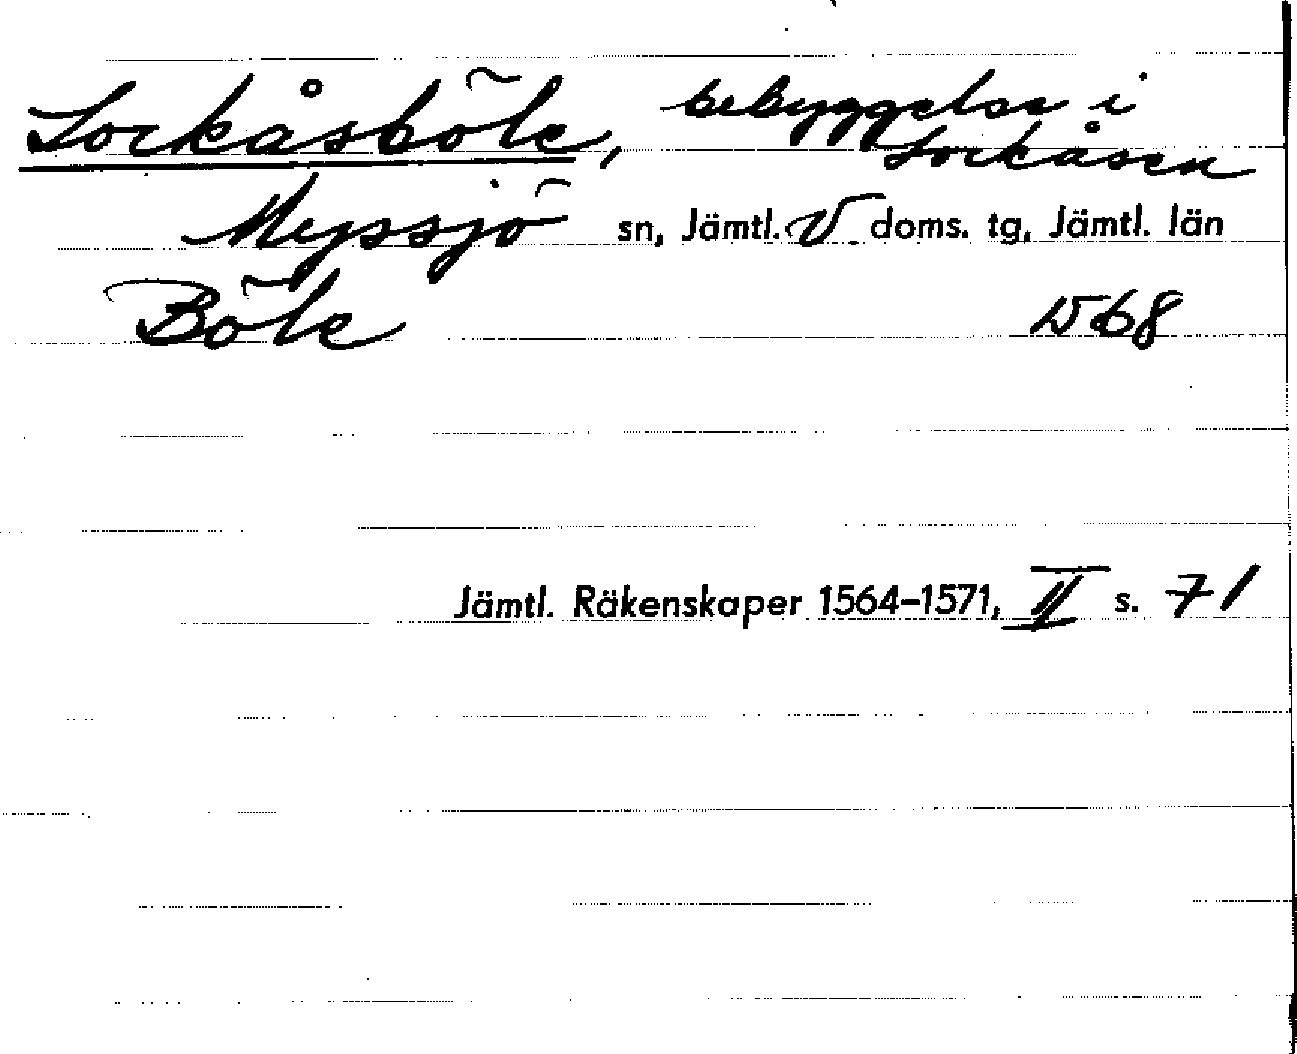 Lockåsböle, bebyggelse i Lockåsen
Myssjö sn, Jämtl. V doms. tg, Jämtl. län
Böle 1568
Jämtl. Räkenskaper 1564-1571, II s. 71